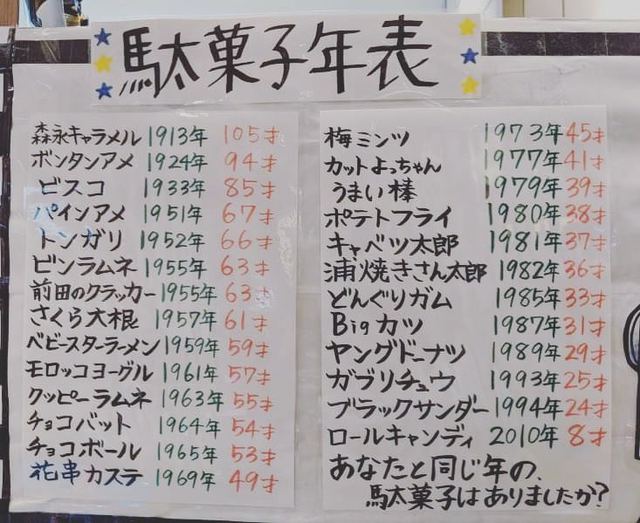 駄菓子年表
森永キャラメル 1913年 105才
ボンタンアメ 1924年 94才
ビスコ 1933年 85才
パインアメ 1951年 67才
トンガリ 1952年 66才
ビンラムネ 1955年 63才
前田のクラッカー 1955年 63才
さくら大根 1957年 61才
ベビースターラーメン 1959年 59才
モロッコヨーグル 1961年 57才
クッピーラムネ 1963年 55才
チョコバット 1964年 54才
チョコボール 1965年 53才
花串カステ 1969年 49才
梅ミンツ 1973年 45才
カットよっちゃん 1977年 41才
うまい棒 1979年 39才
ポテトフライ 1980年 38才
キャベツ太郎 1981年 37才
蒲焼きさん太郎 1982年 36才
どんぐりガム 1985年 33才
Bigカツ 1987年 31才
ヤングドーナツ 1989年 29才
ガブリチュウ 1993年 25才
ブラックサンダー 1994年 24才
ロールキャンディ 2010年 8才
あなたと同じ年の、
駄菓子はありましたか?